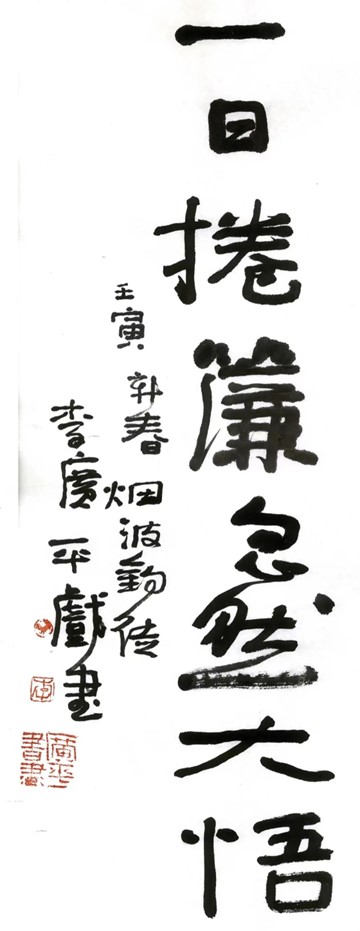 一日捲簾忽然大悟
壬寅新春烟波釣徒
李廣平戲書
廣平書畫